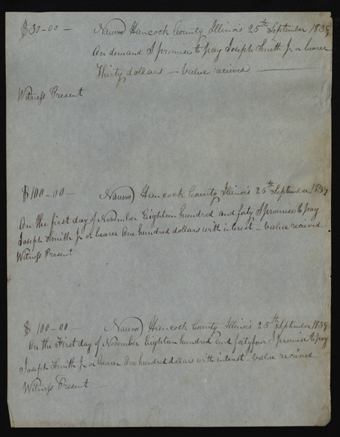 $30-00 — Nauvoo Hancock County Illinois 25th September 1839
On demand I promise to pay Joseph Smith Jr or bearer
Thirty dollars — value received —
Witness Present
$100-00 — Nauvoo Hancock County Illinois 25th September 1839
On the first day of November Eighteen hundred and forty I promise to pay
Joseph Smith Jr or bearer One hundred dollars with interest — value received
Witness Present
$100-00 — Nauvoo Hancock County Illinois 25th September 1839
On the First day of November Eighteen hundred and forty four I promise to pay
Joseph Smith Jr or bearer One hundred dollars with interest — value received
Witness Present —